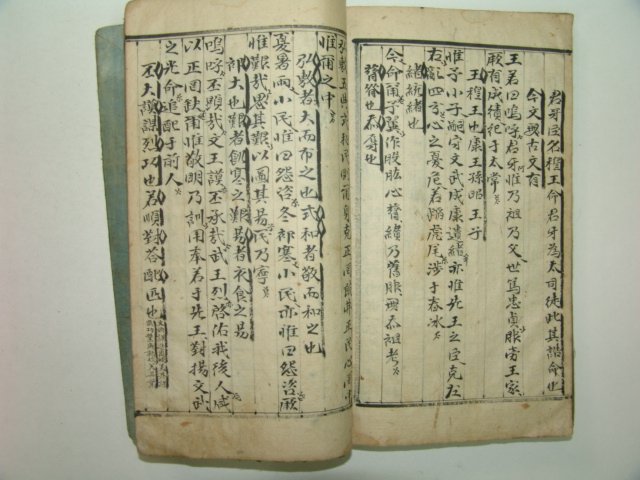 君牙臣名穆王命君牙爲太司徒此其誥命也
今文無古文有
王若曰嗚呼君牙惟乃祖乃父世篤忠貞服勞王家
厥有成績紀于太常
王穆王也康王孫昭王子
惟予小子嗣守文武成康遺緖亦惟先王之臣克左
右亂四方心之憂危若蹈虎尾涉于春氷
緖統緖也
今命爾予翼作股肱心膂纘乃舊服無忝祖考
膂脊也忝辱也
弘敷五典式和民則爾身克正罔敢弗正民心罔中
惟爾之中
弘敷者大而布之也式和者敬而和之也
夏暑雨小民惟曰怨咨冬祁寒小民亦惟曰怨咨厥
惟艱哉思其艱以圖其易民乃寧
祁大也艱者飢寒之艱易者衣食之易
嗚呼丕顯哉文王謨丕承哉武王烈啓佑我後人咸
以正罔缺爾惟敬明乃訓用奉若于先王對揚文武
之光命追配于前人
丕大謨謀烈功也若順對答配匹也